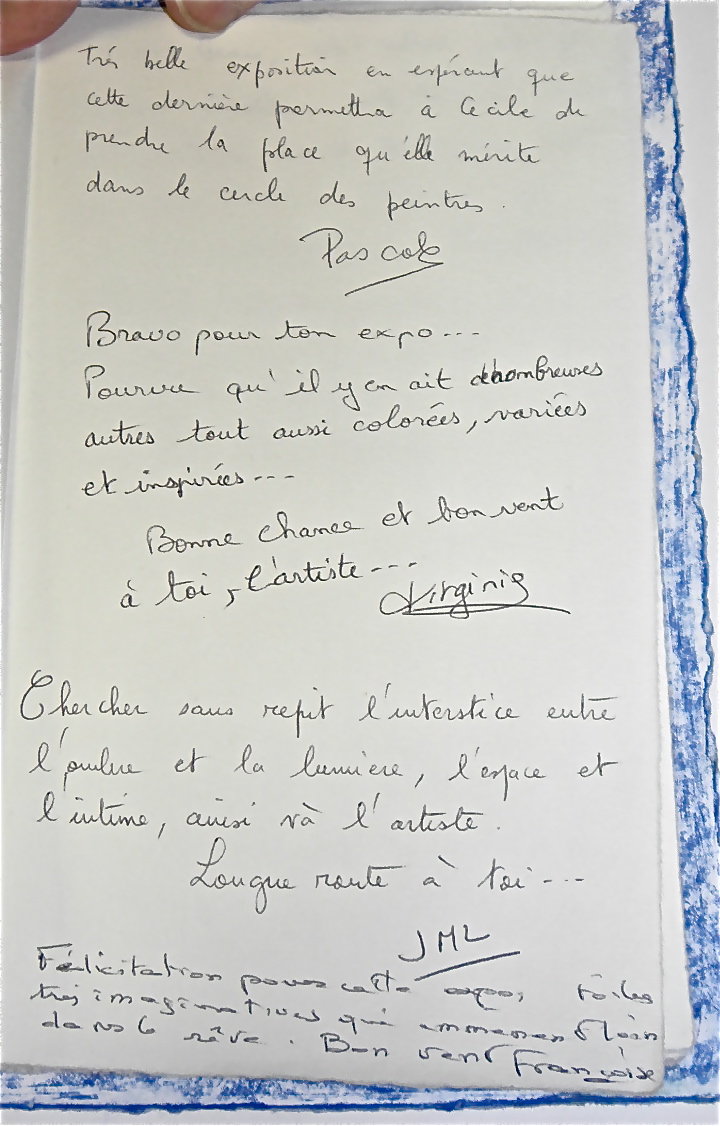 Très belle exposition en espérant que
cette dernière permettra à Cécile de
prendre la place qu'elle mérite
dans le cercle des peintres.
Pascale
Bravo pour ton expo---
Pourvu qu'il y en ait de nombreuses
autres tout aussi colorées, variées
et inspirées---
Bonne chance et bon vent
à toi, l'artiste---
Virginie
Chercher sans répit l'interstice entre
l'ombre et la lumière, l'espace et
l'intime, ainsi và l'artiste.
Longue route à toi---
JML
Félicitation pour cette expo, toiles
très imaginatives qui emmenent loin
dans le rêve. Bon vent Françoise